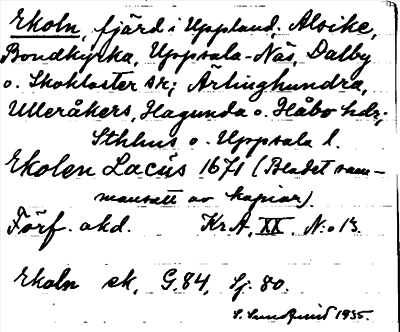 Ekoln, fjärd i Uppland, Alsike,
Bondkyrka, Uppsala-Näs, Dalby
o. Skokloster sr; Ärlinghundra,
Ulleråkers, Hagunda o. Håbo hdr;
Sthlms o. Uppsala l.
Ekolen Lacus 1671 (Bladet sam-
mansatt av kopior).
Förf. okd. Kr.A. XX. N:o 13.
Ekoln ek, G.84, Sj. 80.
S. Sundqvist 1935.